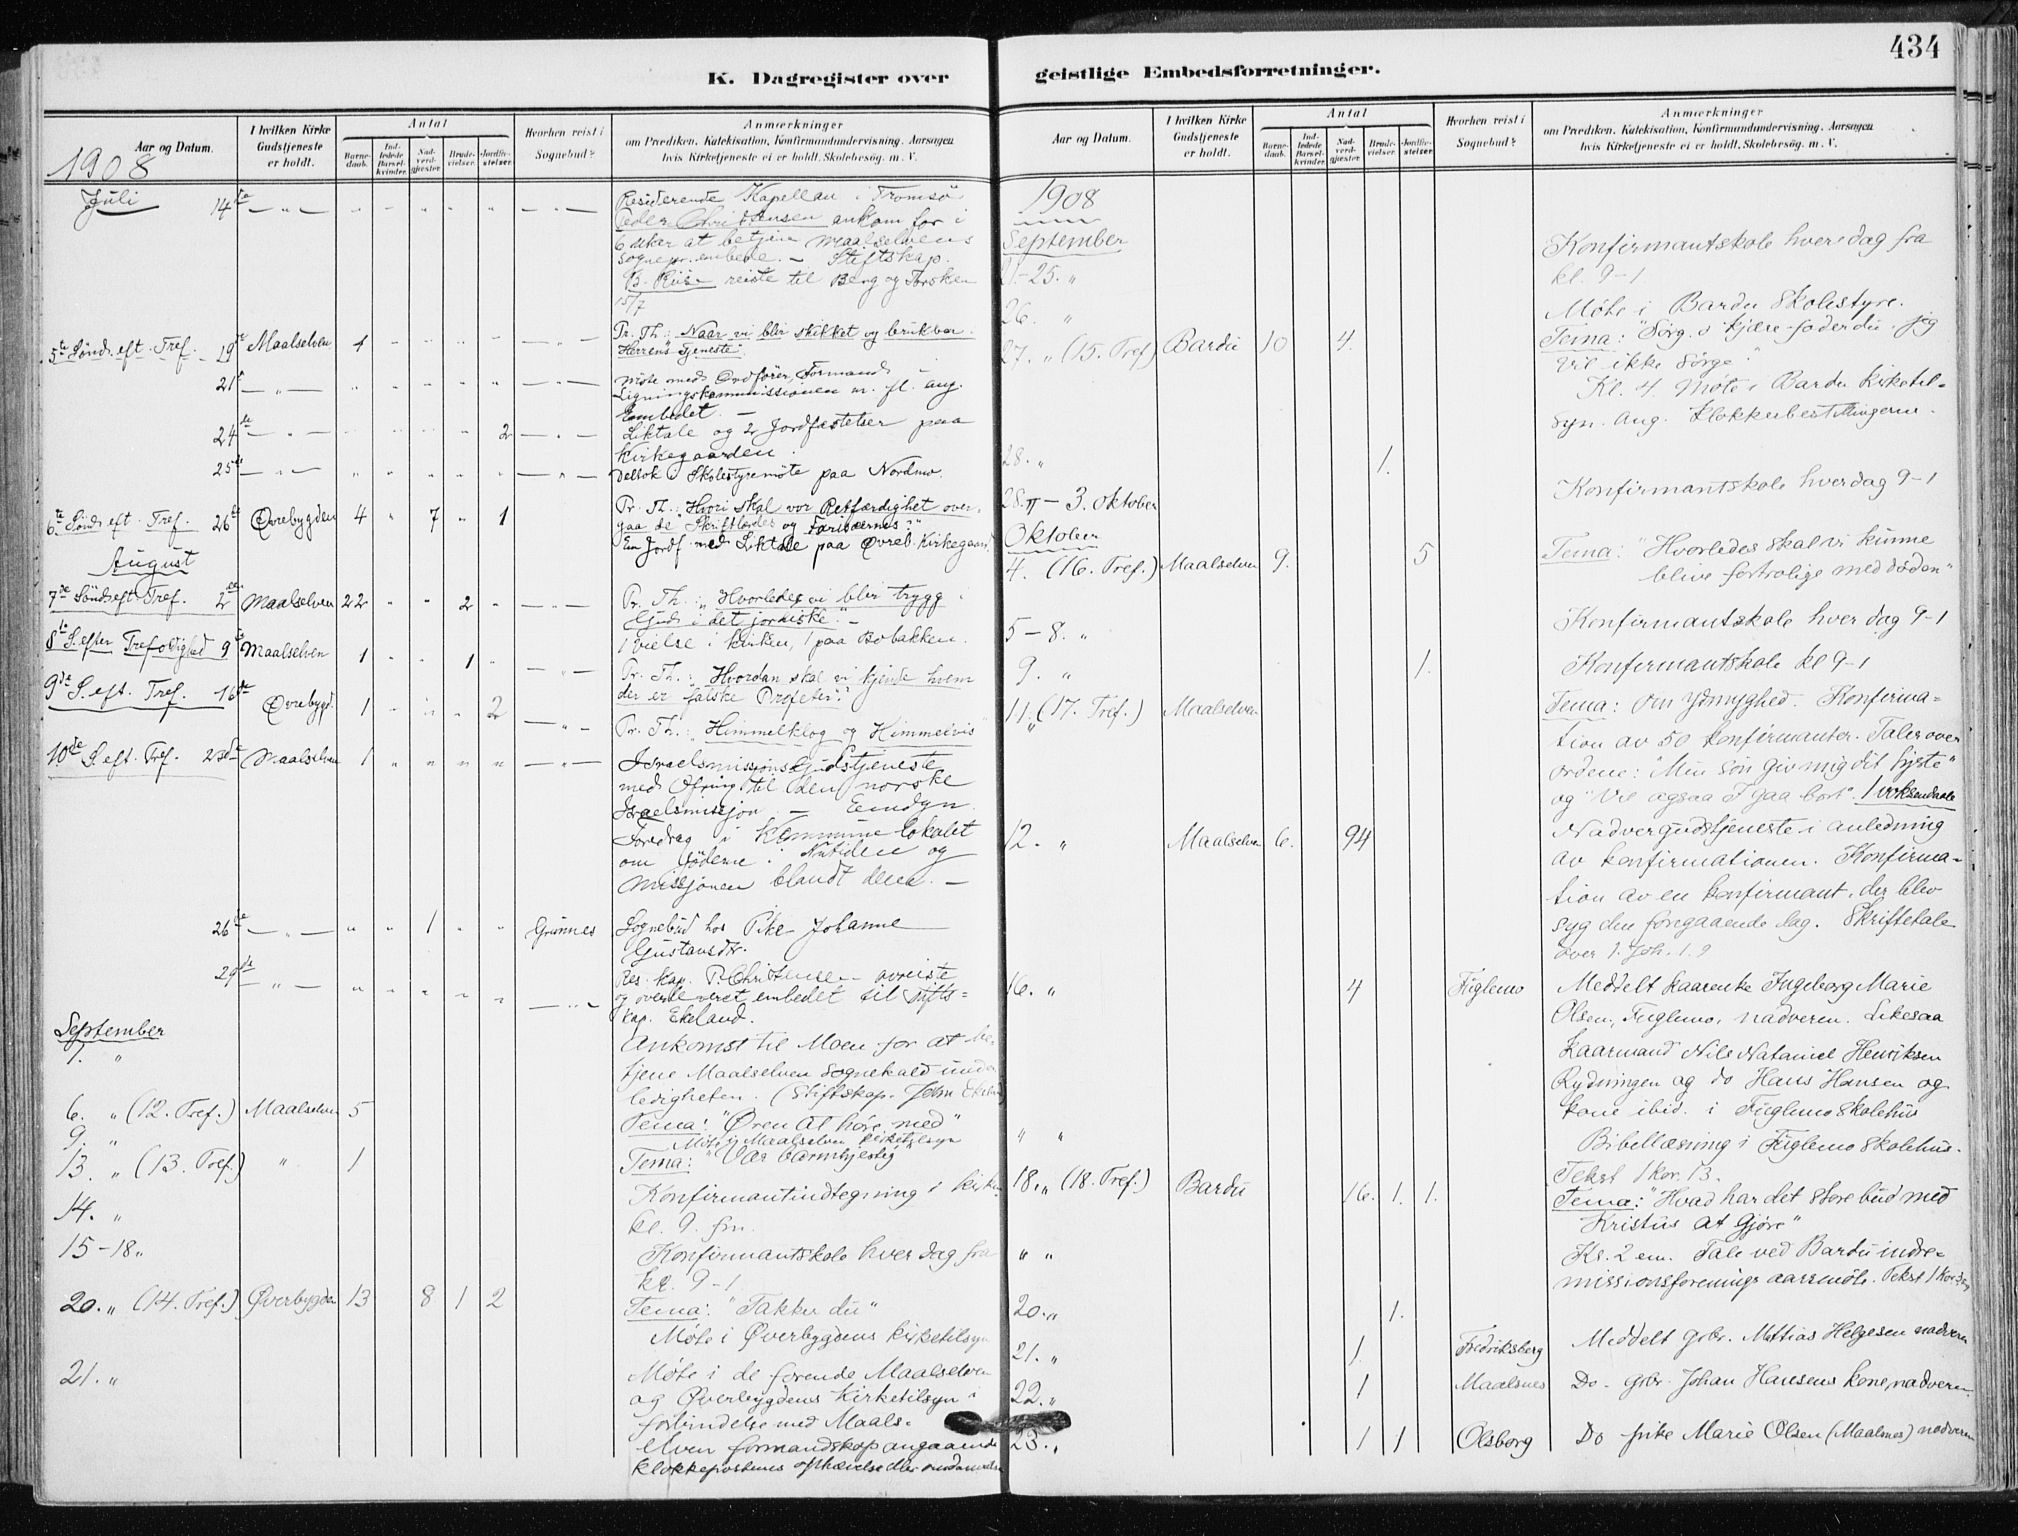 434
K. Dagregister over
geistlige Embedsforretninger.
Aar og Datum.
I hvilken Kirke
Gudstjeneste
er holdt.
Antal
Barne-
daab.
Ind-
ledede
Barsel-
kvinder.
Nad-
verd-
gjester.
Brude-
vielser.
Jordfæ-
stelser.
Hvorhen reist i
Sognebud?
Anmærkninger
om Prædiken, Katekisation, Konfirmandundervisning, Aarsagen
hvis Kirketjeneste ei er holdt, Skolebesøg. m. V.
1908
Juli 14de — „ — „ „ „ „ „ — „ — Residerende Kapellan i Tromsø
Peder Christensen ankom for i
6 uker at betjene Maalselvens
sognepr.embede. — Stiftskap.
B. Riise reiste til Berg og Torsken
15/7
5te Sønd. eft. Tref. 19de Maalselven 1 — „ — Pr. Th.: Naar vi blir skikket og brukbar
Herrens tjeneste.
21 — „ — Møte med Ordfører, Formand
Ligningskommissionen m. fl. ang.
Embedet. —
24de — „ — 2 — „ — Liktale og 2 Jordfæstelser paa
Kirkegaarden.
25de — „ — „ „ „ „ „ — „ — Deltok i Skolestyremøte paa Nordmo.
6te Sønd. eft. Tref. 26de Øvrebygden 4 „ 7 „ 1 Pr. Th.: „Hvori skal vor Retfærdighet over-
gaa de Skriftlærdes og Farisæernes?"
En Jordf. med Liktale paa Øvreb. Kirkegaard.
August
7de Sønd. eft. Tref. 2den Maalselven 22 „ „ 2 „ — „ — Pr. Th.: „Hvorledes vi blir trygg
Gud i det jordiske." —
1 vielse i kirken, 1 paa Bobakken.
8de S. efter Trefoldighed 9de Maalselven 1 „ „ 1 „ — „ — Pr. Th.: Hvordan skal vi kjende hvem
der er falske Profeter?
9de S. eft. Tref. 16de Øvrebygd. 1 „ „ „ 2 — „ — Pr. Th.: Himmelklog og Himmelvis
10de S. eft. Tref. 23de Maalselven 1 „ „ „ „ — „ — Israelsmissionsgudstjeneste
med Ofring til Den norske
Israelsmissjon. —
Foredrag i Kommunelokalet
om Jøderne i Nutiden og
Missjonen blandt dem. —
26de — „ — „ „ 1 „ „ Grønnes Sognebud hos Pike Johanne
Gustavsdtr.
29de — „ — „ „ „ „ „ — „ — Res. kap. P. Christensen avreiste
og overleveret embedet til stifts-
kap. Ekeland.
September
1. „ Ankomst til Moen for at be-
tjene Maalselven sognekald under
ledigheten. (Stiftskap. John Ekeland)
6. „ (12. Tref.) Maalselven 5 Tema: "Øren at høre med"
9. „ Møte i Maalselven kirketilsyn
13. „ (13. Tref.) „ 1 Tema: "Vær barmhjertig"
14. „ Konfirmantindtegning i kirken
kl. 9. fm.
15–18 „ Konfirmantskole hver dag fra
kl. 9–1
20. „ (14. Tref.) Øverbygden 13 8 1 2 Tema: "Takker du"
Møte i Øverbygdens kirketilsyn
21. „ Møte i de forende Maalselven
og Øverbygdens kirketilsyn i
forbindelse med Maals-
elven formandskap angaaende
klokkerpostenes ophævelse eller
Aar og Datum.
I hvilken Kirke
Gudstjeneste
er holdt.
Antal
Barne-
daab.
Ind-
ledede
Barsel-
kvinder.
Nad-
verd-
gjester.
Brude-
vielser.
Jordfæ-
stelser.
Hvorhen reist i
Sognebud?
Anmærkninger
om Prædiken, Katekisation, Konfirmandundervisning, Aarsagen
hvis Kirketjeneste ei er holdt, Skolebesøg. m. V.
1908
September
21–25. „ Konfirmantskole hver dag fra
kl. 9–1
26. „ Møte i Bardu Skolestyre.
27. „ (15. Tref) Bardu 10 4. Tema: "Sørg, o kjære fader du, jeg
vil ikke sørge."
Kl. 4. Møte i Bardu kirketil-
syn. ang. klokkerbestillingerne.
28. „ 1.
28. „ – 3. Oktober Konfirmantskole hver dag 9–1
Oktober
4. (16. Tref.) Maalselven 9. 5 Tema: "Hvorledes skal vi kunne
blive fortrolige med døden"
5–8. „ Konfirmantskole hver dag 9–1
9. „ 1. Konfirmantskole kl 9–1
11. „ (17. Tref.) Maalselven Tema: Om Ydmyghed. Konfirma-
tion av 50 konfirmanter. Taler over
ordene: "Min søn giv mig dit hjerte"
og "Vil ogsaa I gaa bort". 1 voksendaab
12. „ Maalselven 6. 94 Nadvergudstjeneste i anledning
av konfirmationen. Konfirma-
tion av en konfirmant, der blev
syg den foregaaende dag. Skriftetale
over 1. Joh. 1. 9
16. „ 4 Fuglemo Meddelt kaarenke Ingeborg Marie
Olsen, Fuglemo, nadveren. Likesaa
kaarmand Nils Nataniel Henriksen
Rydningen og do Hans Hansen og
kone ibid. i Fuglemo skolehus
„ „ Bibellæsning i Fuglemo skolehus.
Tekst 1 Kor. 13.
18. „ (18. Tref.) Bardu 16. 1. 1. Tema: "Hvad har det store bud med
Kristus at gjøre"
„ „ Kl. 2 em. Tale ved Bardu indre-
missionsforenings aarsmøte. Tekst 1 Kor.
20. „ 1.
21. „ 1. Fredriksberg Meddelt gbr. Mattias Helgesen nadveren
22. „ 1 Maalsnes Do – gbr. Johan Hansens kone, nadveren
23. „ 1 1 Olsborg Do pike Marie Olsen (Maalsnes) nadveren